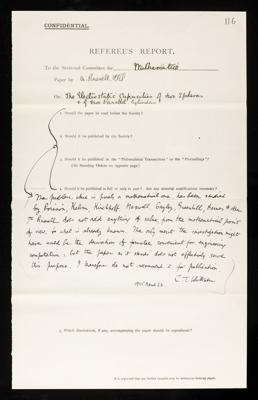 116
CONFIDENTIAL.
REFEREE'S REPORT.
To the Sectional Committee for Mathematics
Paper by A. Russell
On The Electrostatic Capacities of two Spheres
& of two Parallel Cylinders
1. Should the paper be read before the Society?
2. Should it be published by the Society?
3. Should it be published in the "Philosophical Transactions" or the "Proceedings"?
(See Standing Orders on opposite page)
4. Should it be published in full or only in part? Are any material modifications necessary?
problem, which is purely a mathematical one, has been studied
by Poisson, Kelvin, Kirchhoff, Maxwell, Cayley, Greenhill, &
does not add anything of value, from the mathematical point
of view, to what is already known. The only merit the investigation might
have would be the derivation of formulae convenient for engineering
computation; but the paper as it stands does not effectively serve
this purpose. I therefore do not recommend it for publication.
E. T. Whittaker
5. Which illustrations, if any, accompanying the paper should be reproduced?